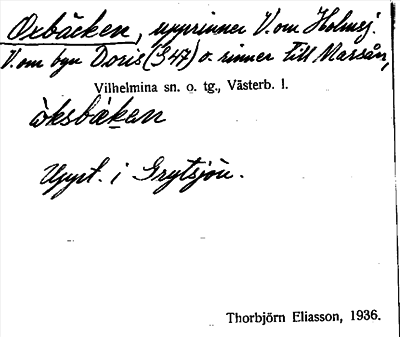 Oxbäcken, upprinner V. om Holmsj.
V. om byn Doris (S 47) o. rinner till Marsån,
Vilhelmina sn. o. tg., Västerb. l.
òksbæ̀kən
Uppt. i Grytsjön.
Thorbjörn Eliasson, 1936.